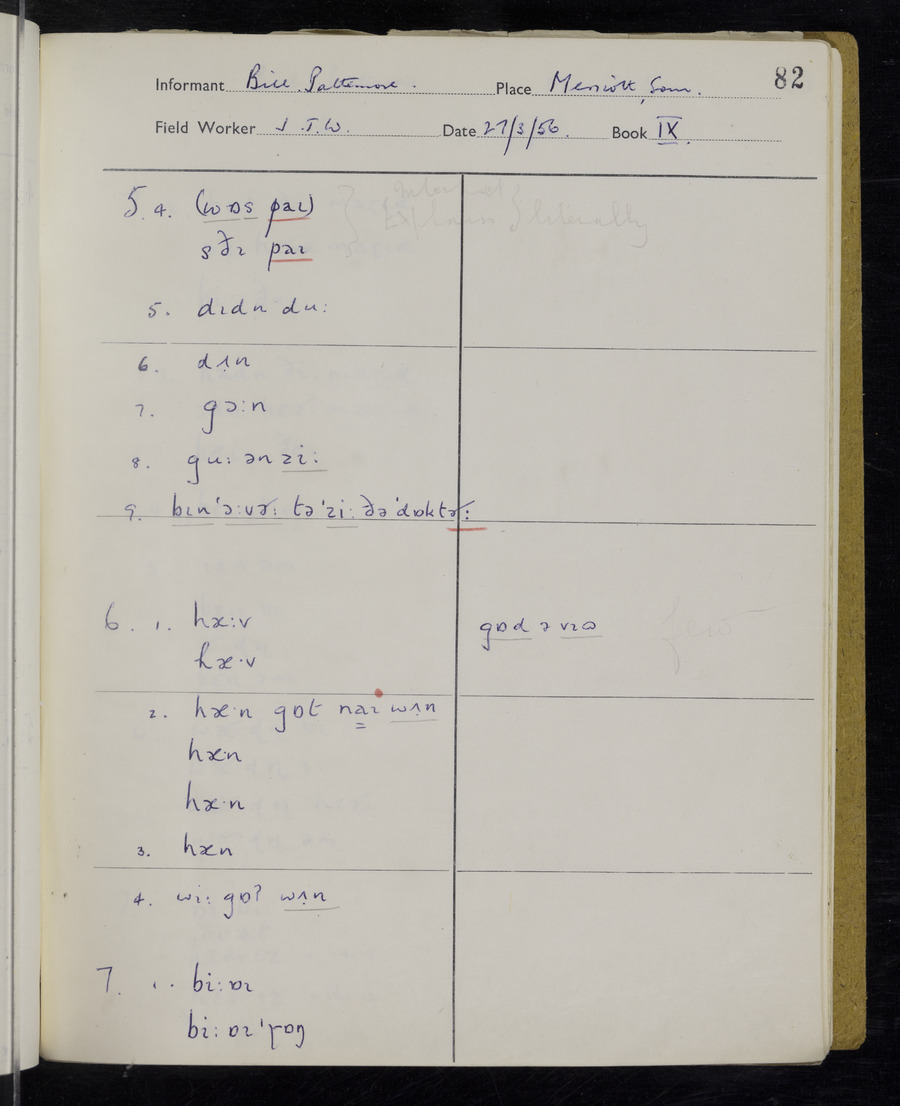 82
Informant Bill Pattemore. Place Merriott, Som.
Field Worker J.T.W. Date 27/3/56. Book IX.
5. 4. (wɒs paɪ)
sðɪ paɪ
5. dɪdn du:
6. dʌn
7. gɔ:n
8. gu: ən zi:
9. bɪn'ɔ:vəʳ: tə'zi: ðə'dɒktəʳ:
6. 1. hæ:v
hæ·v
gɒd ə vɪɷ
few
2. hæ·n gɒt naɪ wʌn
hæ·n
hæ·n
3. hæn
4. wi: gɒʔ wʌn
7. 1. bi: ɒɪ